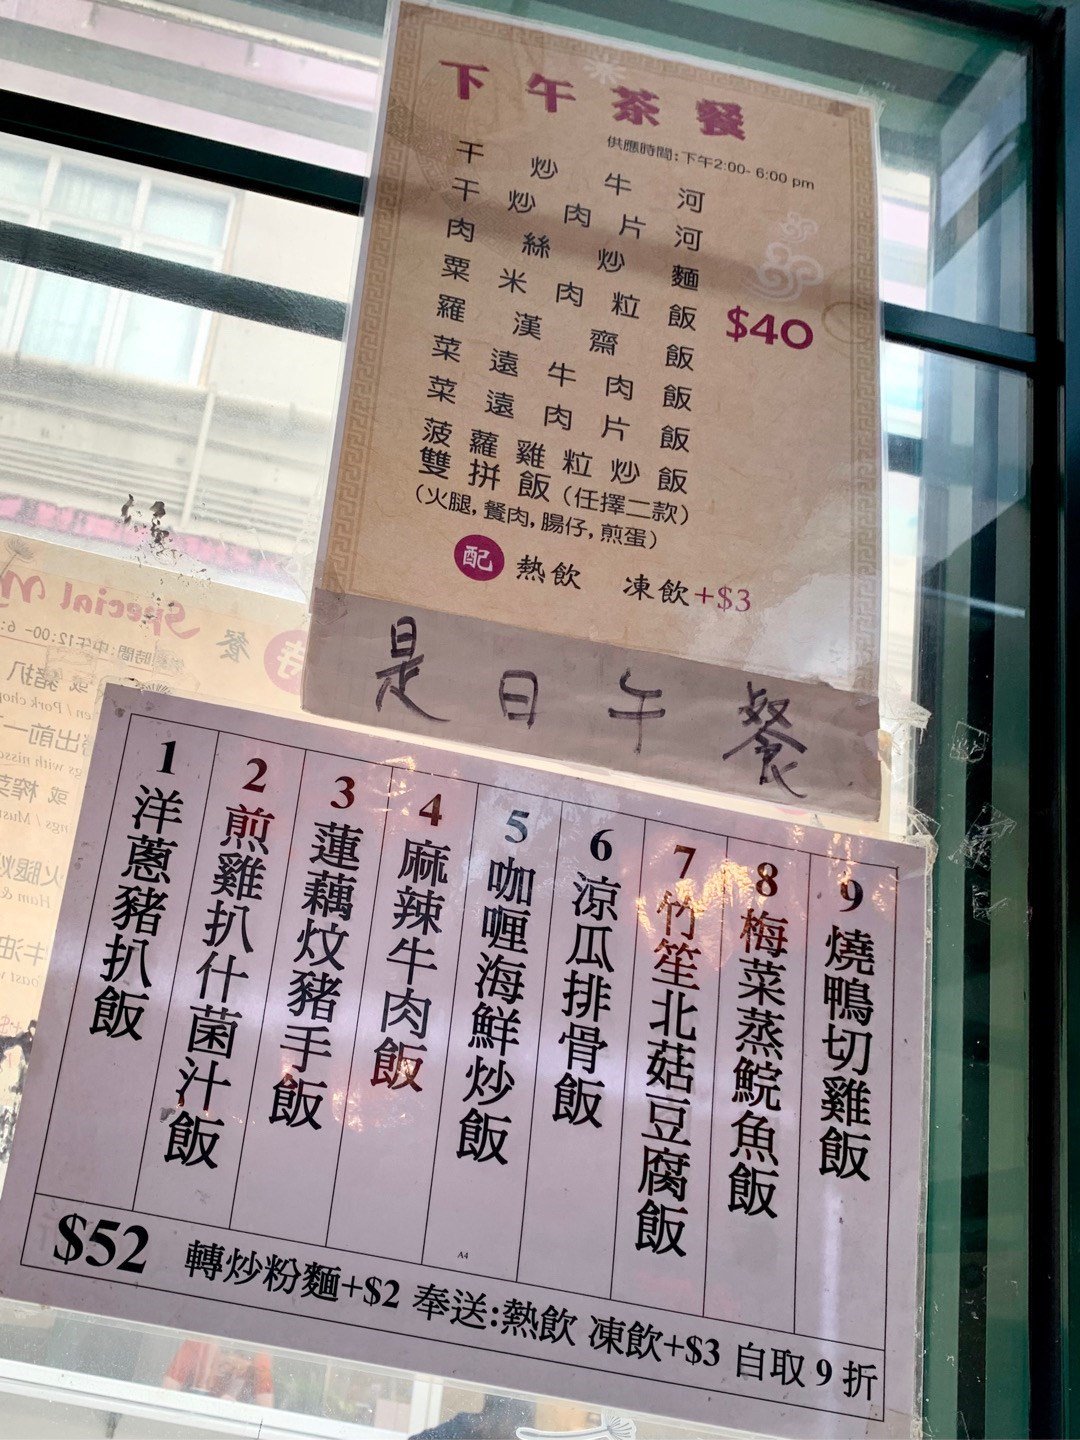 下午茶餐
供應時間:下午2:00- 6:00 pm
干炒牛河
干炒肉片河
肉絲炒麵
粟米肉粒飯
羅漢齋飯
菜遠牛肉飯
菜遠肉片飯
菠蘿雞粒炒飯
雙拼飯(任擇二款)
(火腿, 餐肉, 腸仔, 煎蛋)
$40
配 熱飲 凍飲+$3
是日午餐
1 洋蔥豬扒飯
2 煎雞扒什菌汁飯
3 蓮藕炆豬手飯
4 麻辣牛肉飯
5 咖喱海鮮炒飯
6 涼瓜排骨飯
7 竹笙北菇豆腐飯
8 梅菜蒸鯇魚飯
9 燒鴨切雞飯
A4
$52 轉炒粉麵+$2 奉送:熱飲 凍飲+$3 自取9折
Special
餐
時間:中午12:00- 6:
或 豬扒
/ Pork chop